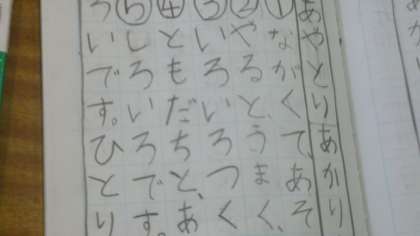 あやとりあかり
①ながくて、あそ
②やると、うまく、
③いろいろつく
④ともだちと、あ
⑤しろいろです。
いです。ひとり